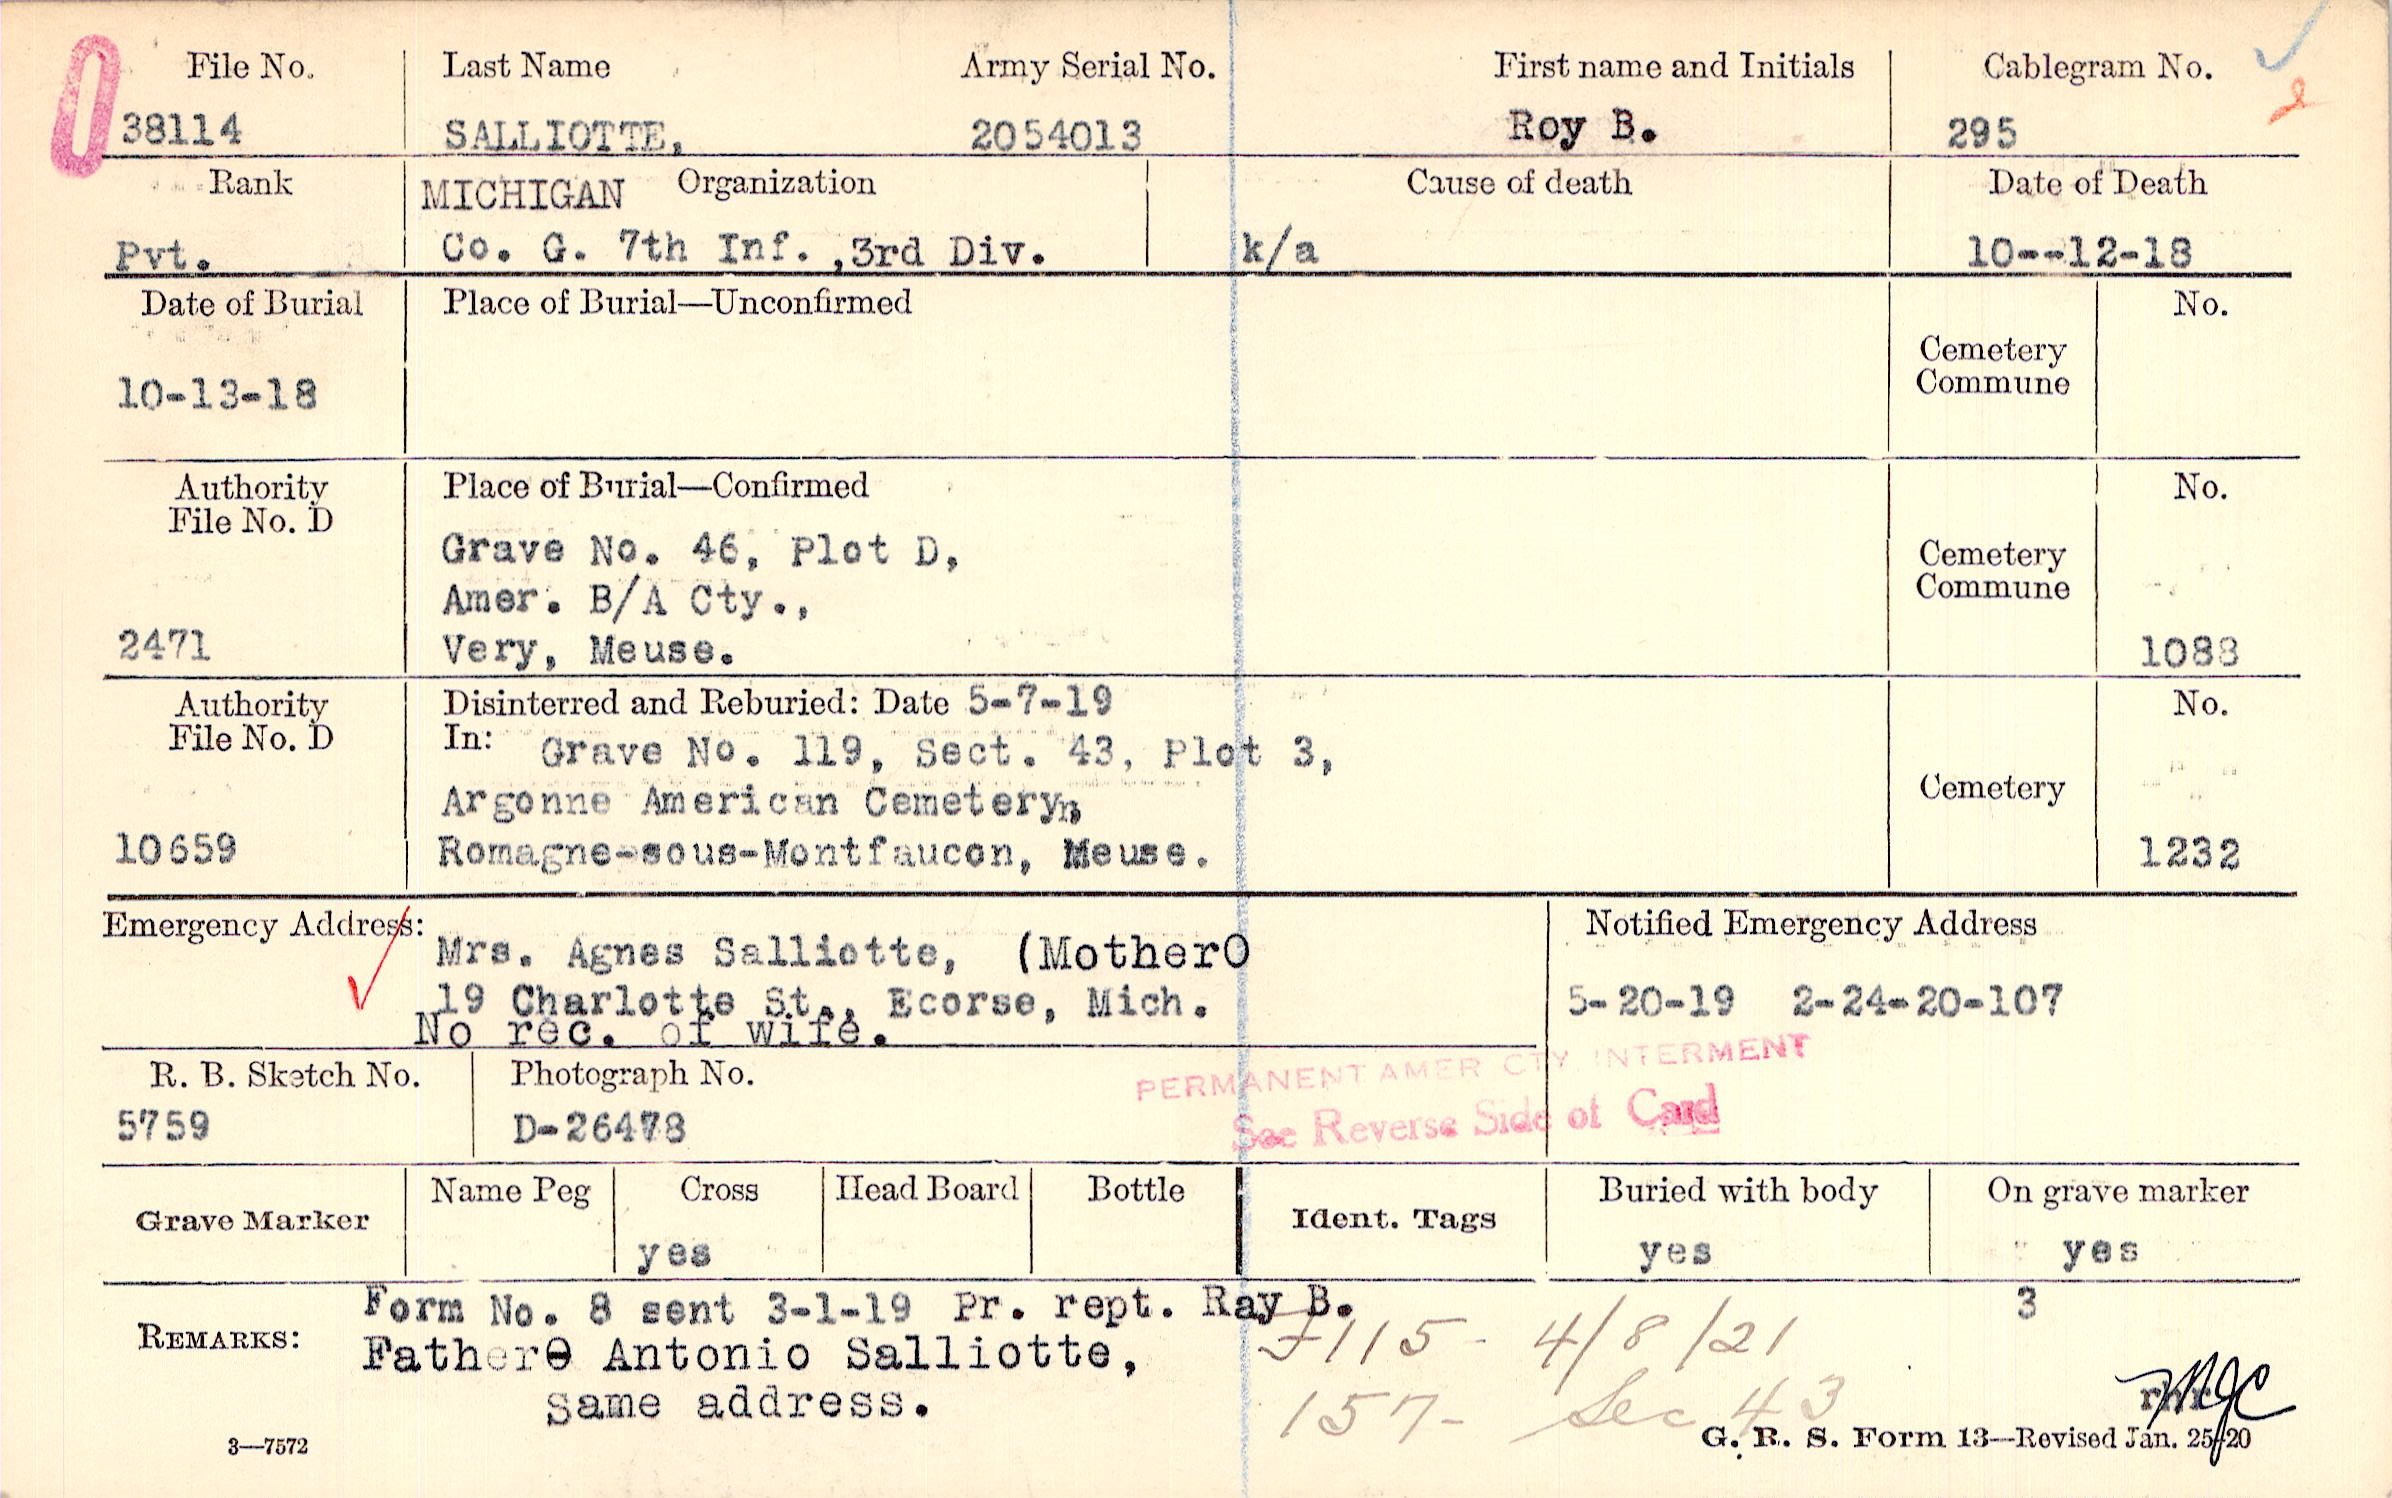 File No. Last Name Army Serial No. First name and Initials Cablegram No.
38114 SALLIOTTE, 2054013 Roy B. 295
Rank MICHIGAN Organization Cause of death Date of Death
Pvt. Co. G. 7th Inf. ,3rd Div. k/a 10--12-18
Date of Burial Place of Burial—Unconfirmed No.
Cemetery
Commune
10-13-18
Authority Place of Burial—Confirmed No.
File No. D
Grave No. 46, Plot D,
Cemetery
Amer. B/A Cty.,
Commune
2471 Very, Meuse. 1088
Authority Disinterred and Reburied: Date 5-7-19 No.
File No. D In: Grave No. 119, Sect. 43, Plot 3,
Argonne American Cemetery, Cemetery
10659 Romagne-sous-Montfaucon, Meuse. 1232
Emergency Address: Notified Emergency Address
Mrs. Agnes Salliotte, (MotherO
19 Charlotte St., Ecorse, Mich. 5-20-19 2-24-20-107
No rec. of wife.
PERMANENT AMER CTY INTERMENT
R. B. Sketch No. Photograph No.
See Reverse Side of Card
5759 D-26478
Grave Marker Name Peg Cross Head Board Bottle Ident. Tags Buried with body On grave marker
yes yes yes
Form No. 8 sent 3-1-19 Pr. rept. Ray B. 3
REMARKS: Father Antonio Salliotte, 115 - 4/8/21
same address. 157- Sec 43
3—7572 G. R. S. Form 13—Revised Jan. 25-20